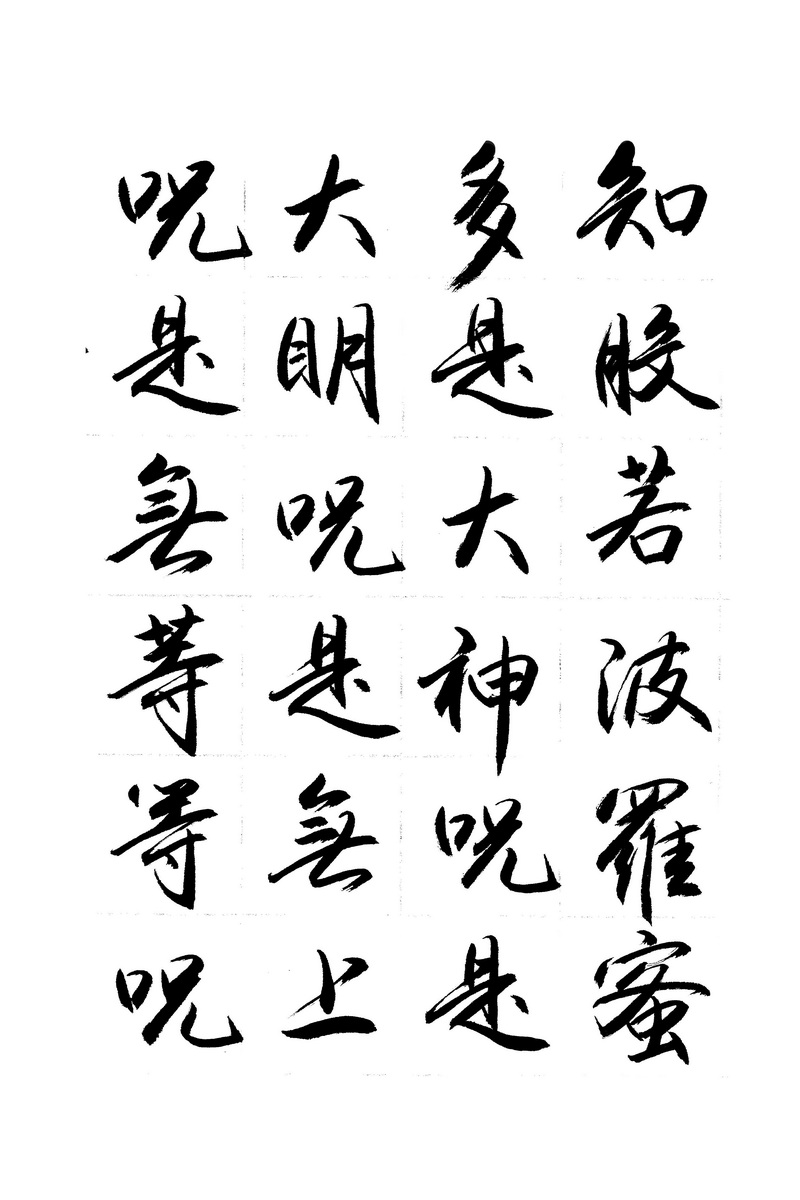 知般若波羅蜜
多是大神呪是
大明呪是無上
呪是無等等呪